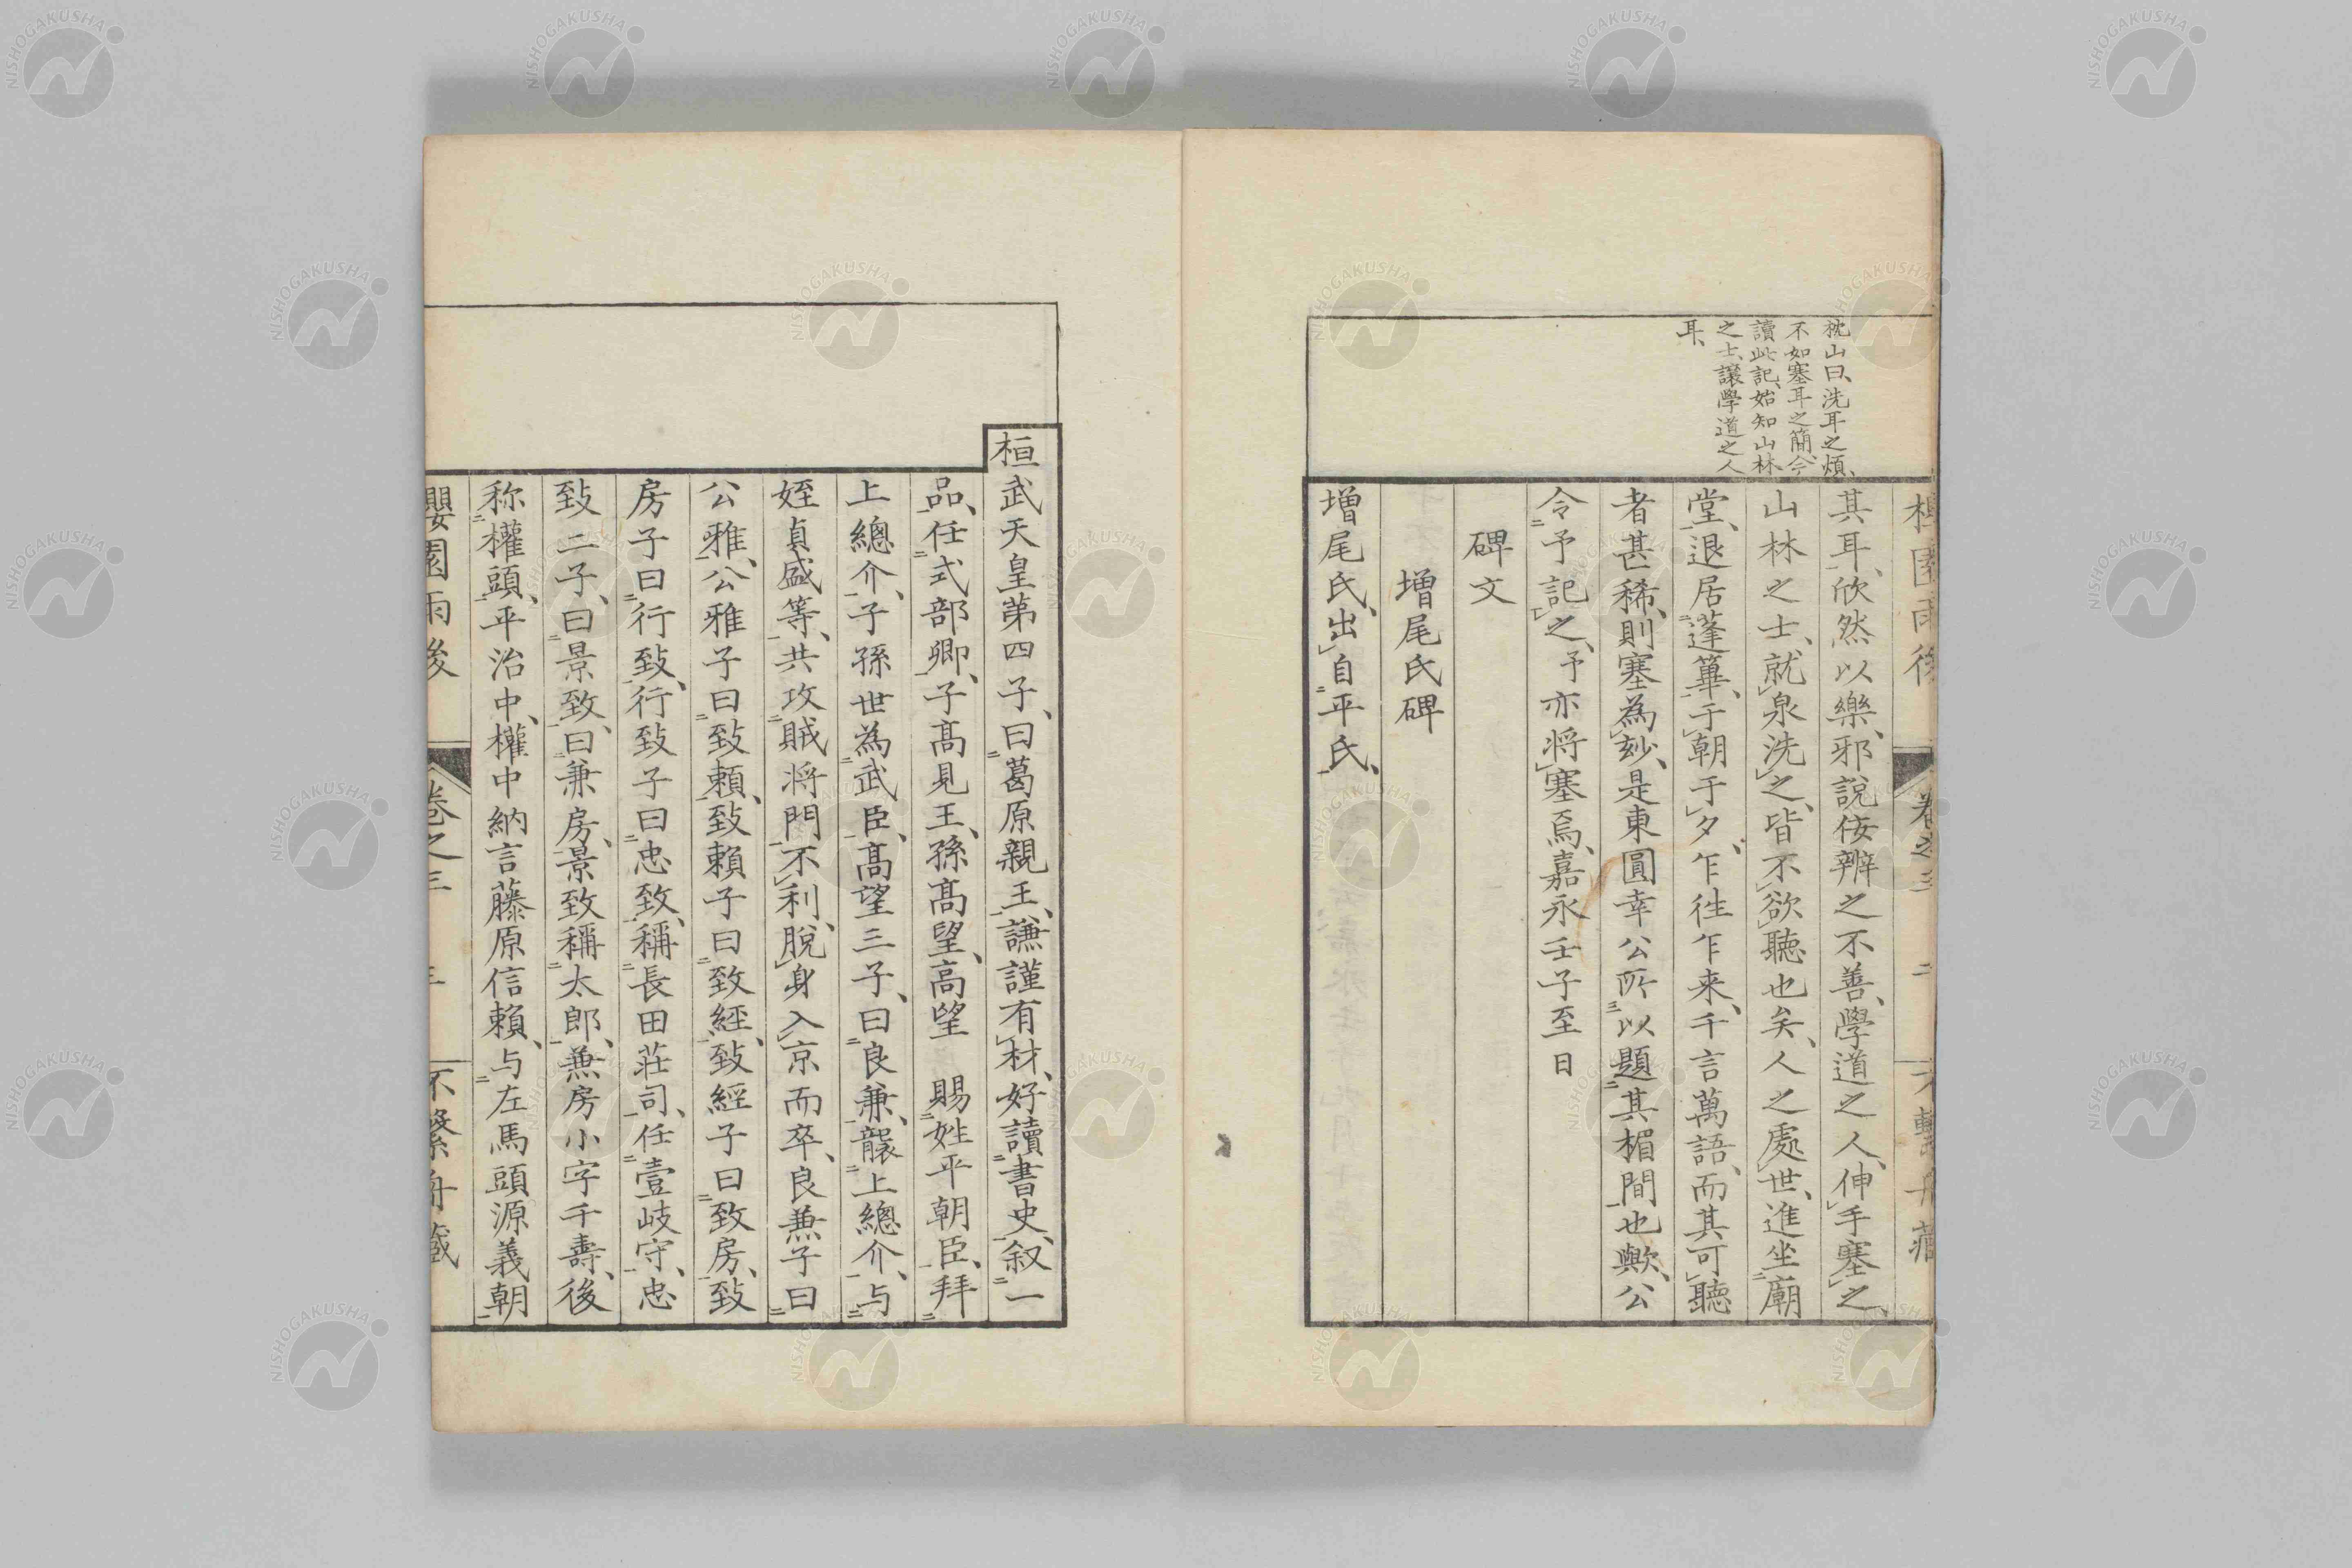 枕山曰、洗耳之煩、
不如塞耳之簡、今
讀此記、始知山林
之士、讓學道之人
耳、
其耳、欣然以樂、邪說侫辨之不善、學道之人、伸手塞之、
山林之士、就泉洗之、皆不欲聽也矣、人之處世、進坐廟
堂、退居蓬蓽、于朝于夕、乍徃乍来、千言萬語、而其可聽
者甚稀、則塞為妙、是東圓幸公所以題其楣間也歟、公
令予記之、予亦将塞焉、嘉永壬子至日
碑文
增尾氏碑
增尾氏、出自平氏、
桓武天皇第四子、曰葛原親王、謙謹有材、好讀書史、叙一
品、任式部卿、子髙見王、孫髙望、高望 賜姓平朝臣、拜
上總介、子孫世為武臣、髙望三子、曰良兼、襲上總介、与
姪貞盛等、共攻賊将門、不利、脫身入京而卒、良兼子曰
公雅、公雅子曰致頼、致頼子曰致經、致經子曰致房、致
房子曰行致、行致子曰忠致、稱長田莊司、任壹岐守、忠
致二子、曰景致、曰兼房、景致稱太郎、兼房小字千壽、後
称權頭、平治中、權中納言藤原信賴、与左馬頭源義朝
櫻園雨後 卷之三 三 不繫舟藏